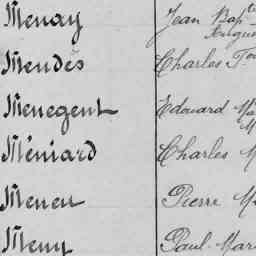 Menay Jean Bap.te
Augus
Mendès Charles
Menegent Edouard Ma
Méniard Charles M
Meneu Pierre M
Meny Paul-Mari